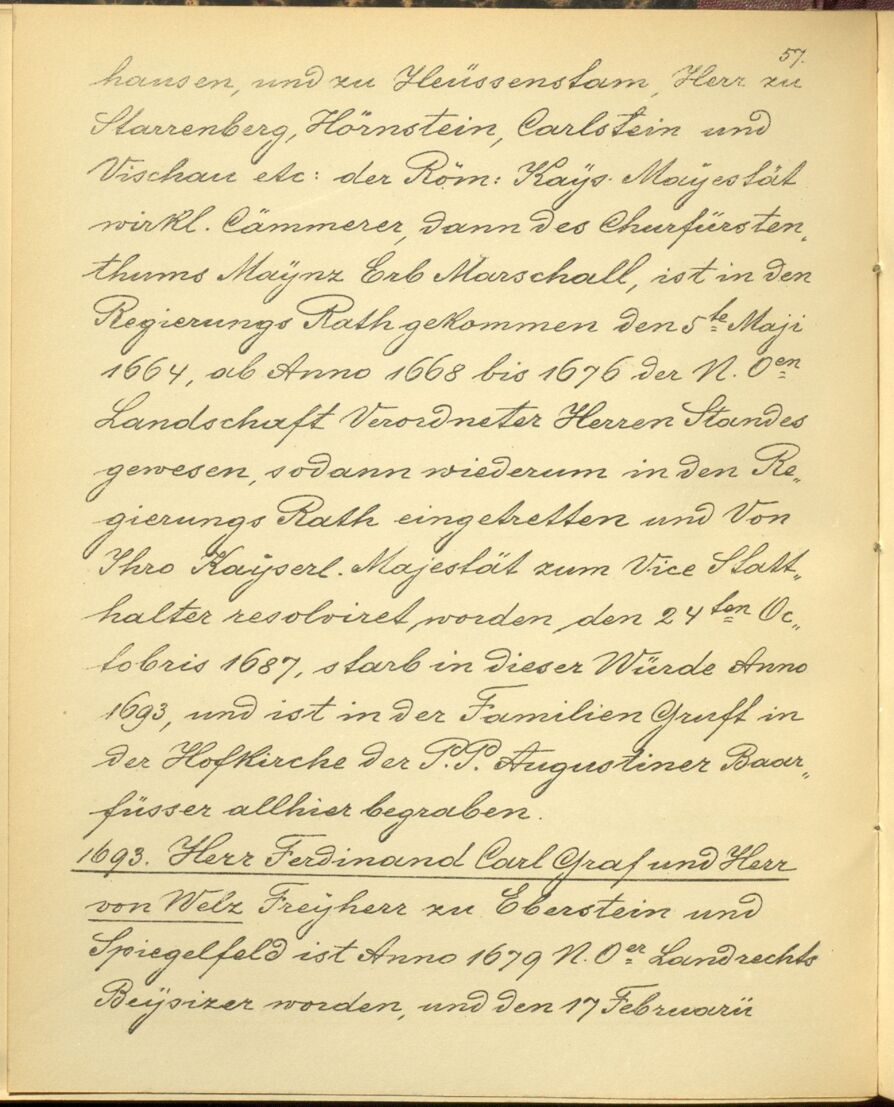 57.
hausen, und zu Heüssenstam, Herr zu
Starrenberg, Hörnstein, Carlstein und
Vischau etc: der Röm: Kaÿs. Mayestät
wirkl. Cämmerer, dann des Churfürsten„
thums Maÿnz Erb Marschall, ist in den
Regierungs Rath gekommen den 5te Maji
1664, ab Anno 1668 bis 1676 der N. Oen
Landschaft Verordneter Herren Standes
gewesen, sodann wiederum in den Re„
gierungs Rath eingetretten und Von
Ihro Kaÿserl. Majestät zum Vice Statt„
halter resolviret, worden, den 24ten Oc„
tobris 1687, starb in dieser Würde Anno
1693, und ist in der Familien Gruft in
der Hofkirche der P.P. Augustiner Baar„
füsser allhier begraben.
1693. Herr Ferdinand Carl Graf und Herr
von Welz Freÿherr zu Eberstein und
Spiegelfeld ist Anno 1679 N. Oer Landrechts
Beÿsizer worden, und den 17 Februarii